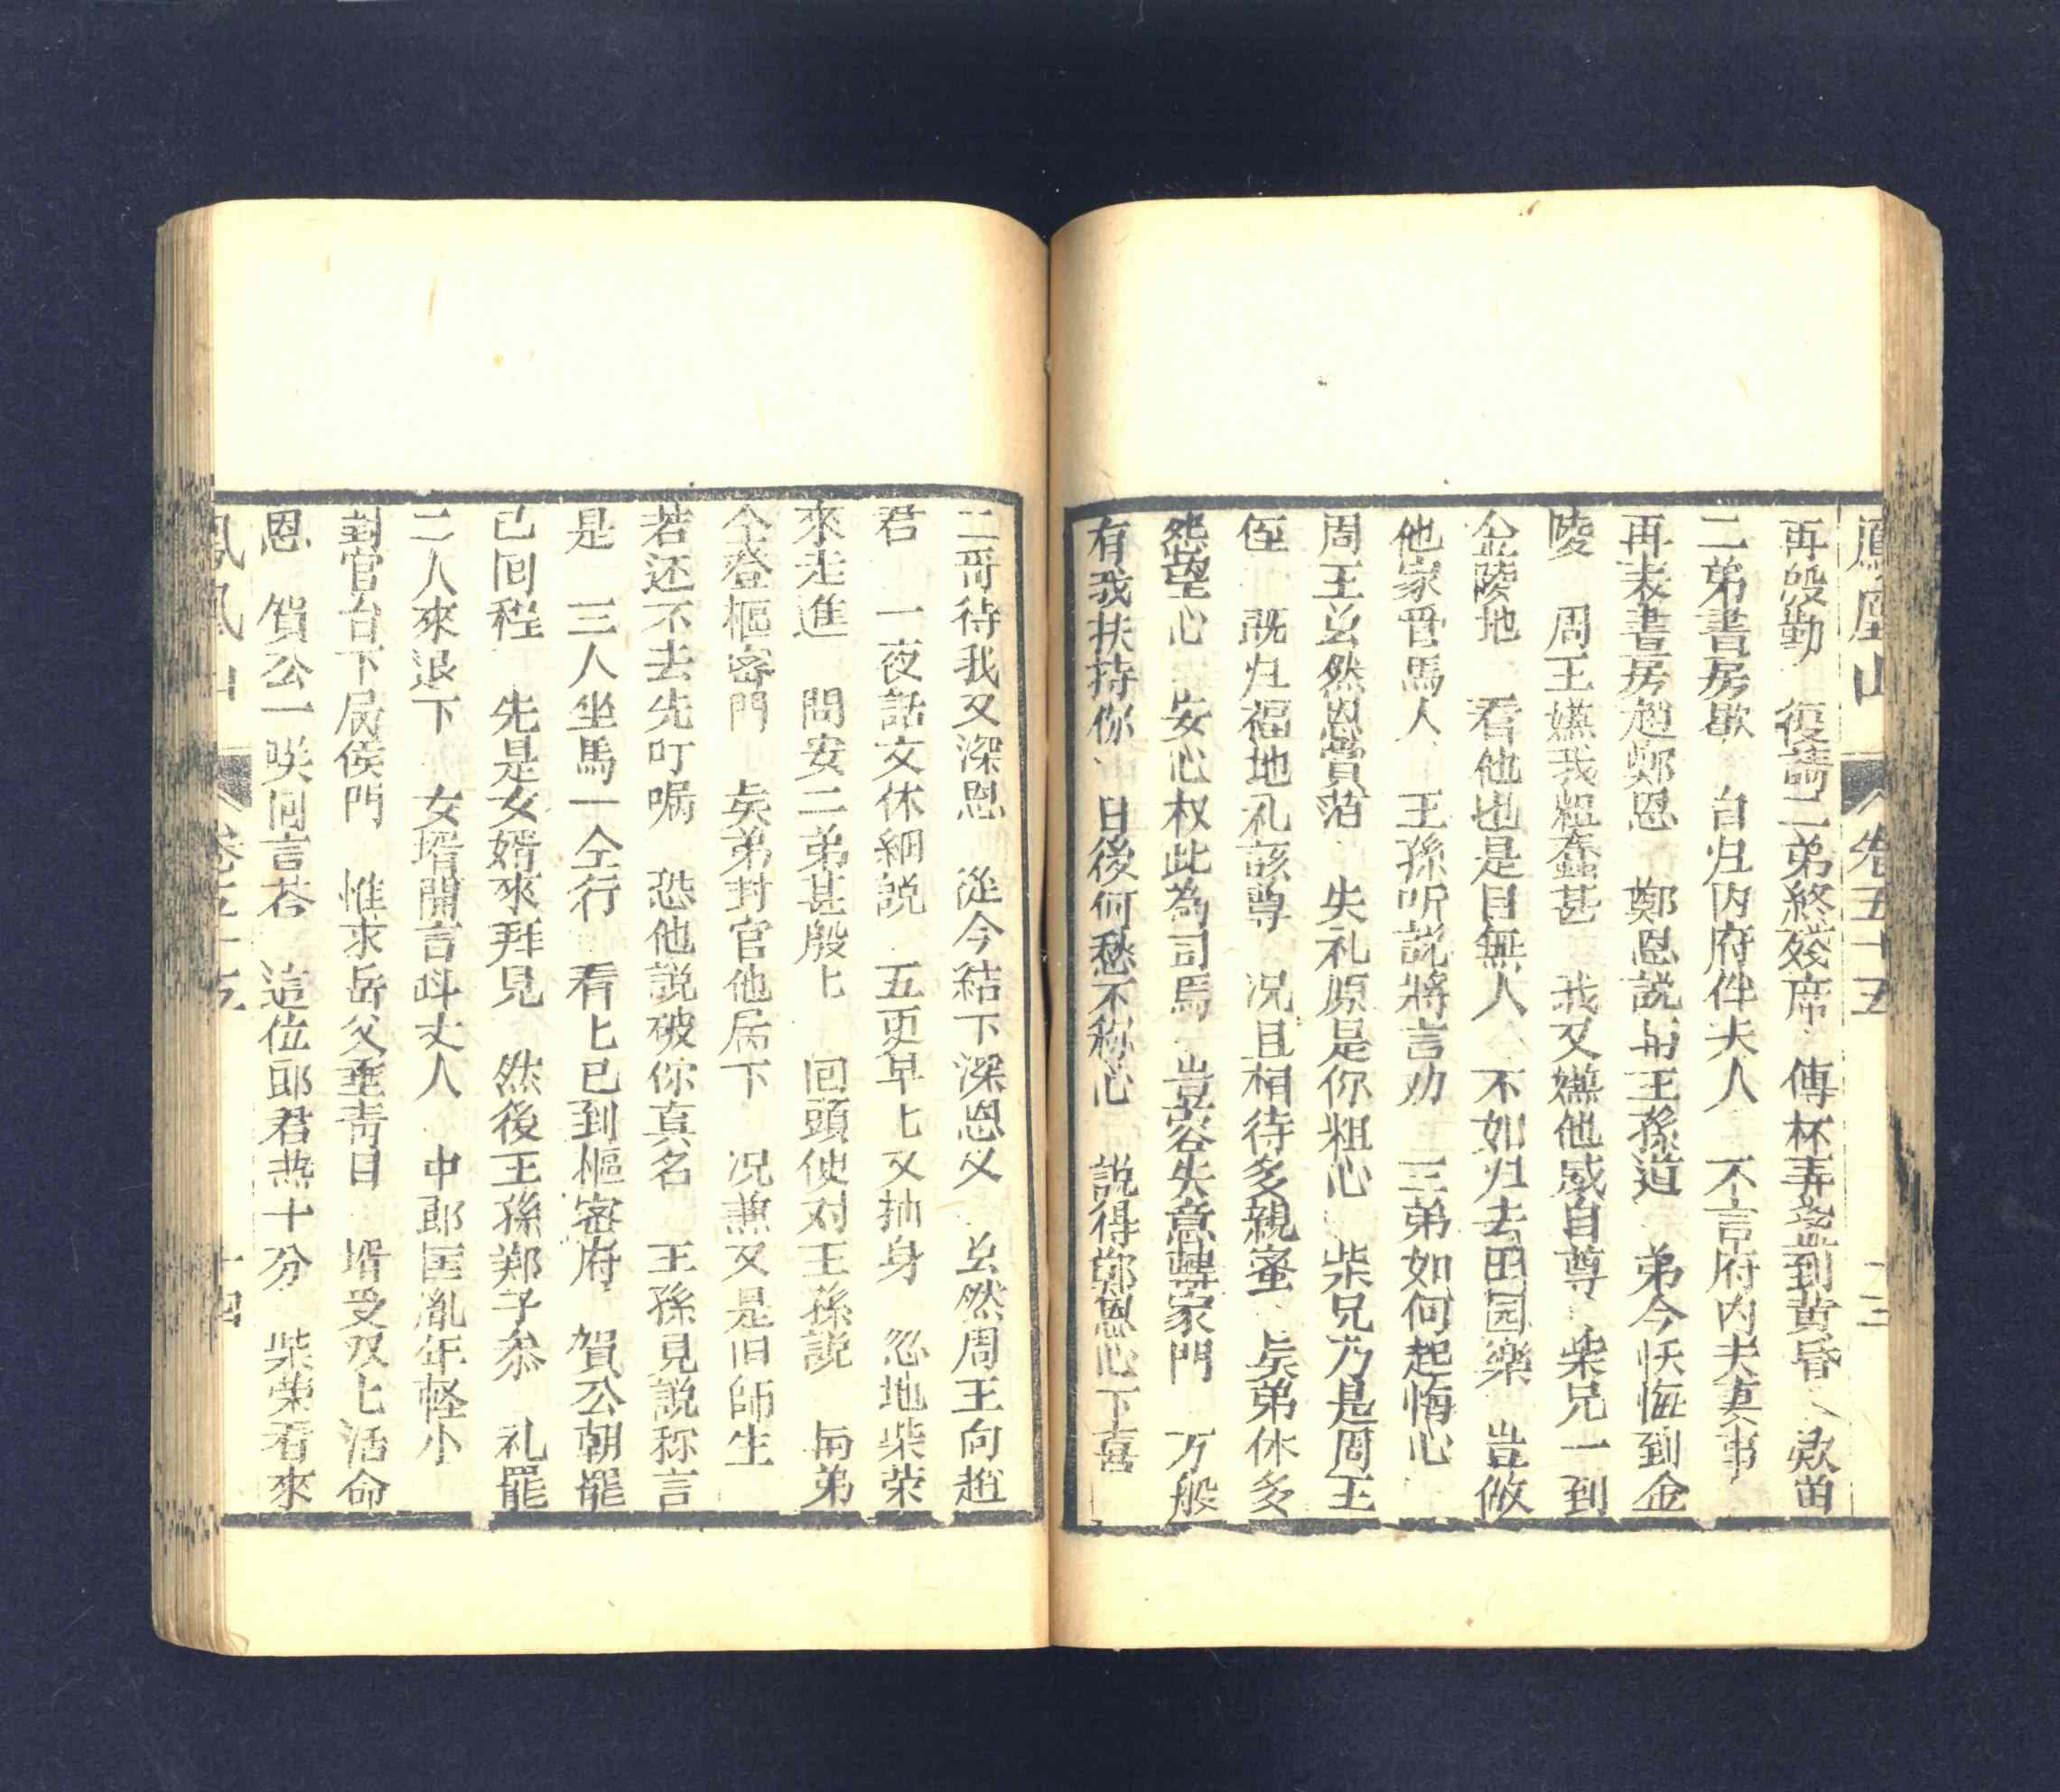 鳳凰山 卷五十五
再殷勤 復請二弟終殘席 傳杯弄盞到黃昏 欵留
二弟書房歇 自归内府伴夫人 不言府内夫妻事
再表書房趙鄭恩 鄭恩説与王孫道 弟今恹悔到金
陵 周王嫌我粗蠢甚 我又嫌他威自尊 柴兄一到
金陵地 看他也是目無人 不如归去田园樂 豈做
他家晋馬人 王孫听説將言劝 三弟如何起悔心
周王虽然恩賞薄 失礼原是你粗心 柴兄乃是周王
侄 既归福地礼該尊 况且相待多親蜜 矣弟休多
怨望心 安心权此為司馬 豈容失意轉家門 万般
有我扶持你 日後何愁不称心 説得鄭恩心下喜
二哥待我又深恩 從今結下深恩义 虽然周王向趙
君 一夜話文休細説 五更早匕又抽身 忽地柴荣
來走進 問安二弟甚殷匕 回頭使对王孫説 与弟
仝登樞密門 矣弟封官他居下 况兼又是旧師生
若还不去先叮嘱 恐他説破你真名 王孫見説称言
是 三人坐馬一仝行 看匕已到樞密府 賀公朝罷
已回程 先是女婿來拜見 然後王孫鄭子叅 礼罷
二人來退下 女壻開言呌丈人 中郎匡胤年輕小
封官台下居侯門 惟求岳父垂青目 壻受双匕活命
恩 賀公一咲回言荅 這位郎君热十分 柴荣看來
鳳凰山 卷五十五 十四